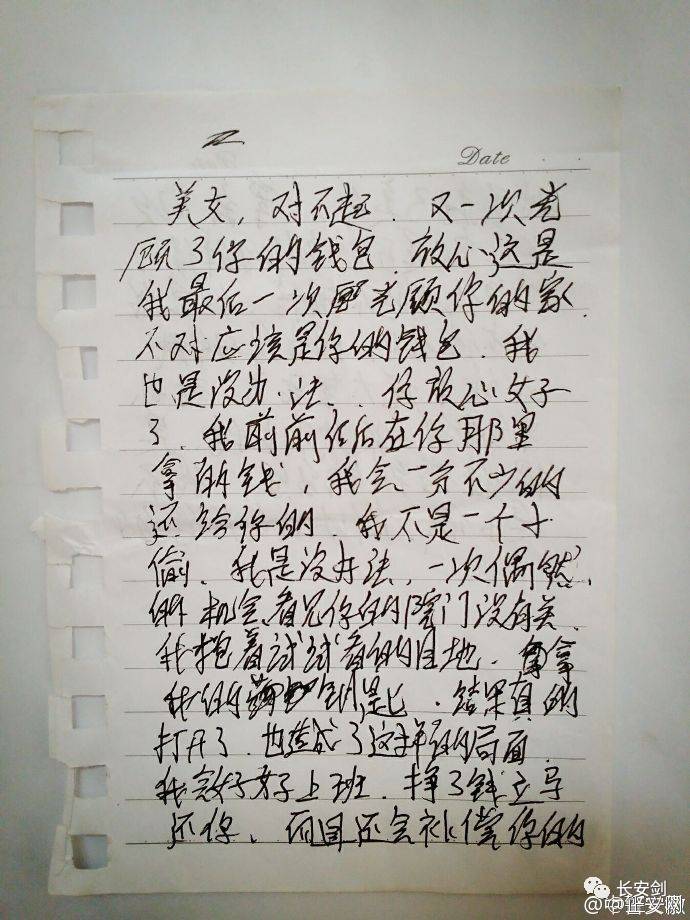 Date
美女，对不起．又一次光
顾了你的钱包．放心，这是
我最后一次光顾你的家．
不对应该是你的钱包．我
也是没办法．．你放心女子
了．我前前后后在你那里
拿的钱，我会一分不少的
还给你的．我不是一个小
偷．我是没办法．一次偶然
的机会看见你的院门没有关．
我抱着试试看的目地．拿
我的钥匙．结果真的
打开了．也造成了这样的局面．
我会好好上班．挣了钱立马
还你．而且还会补偿你的
长安剑